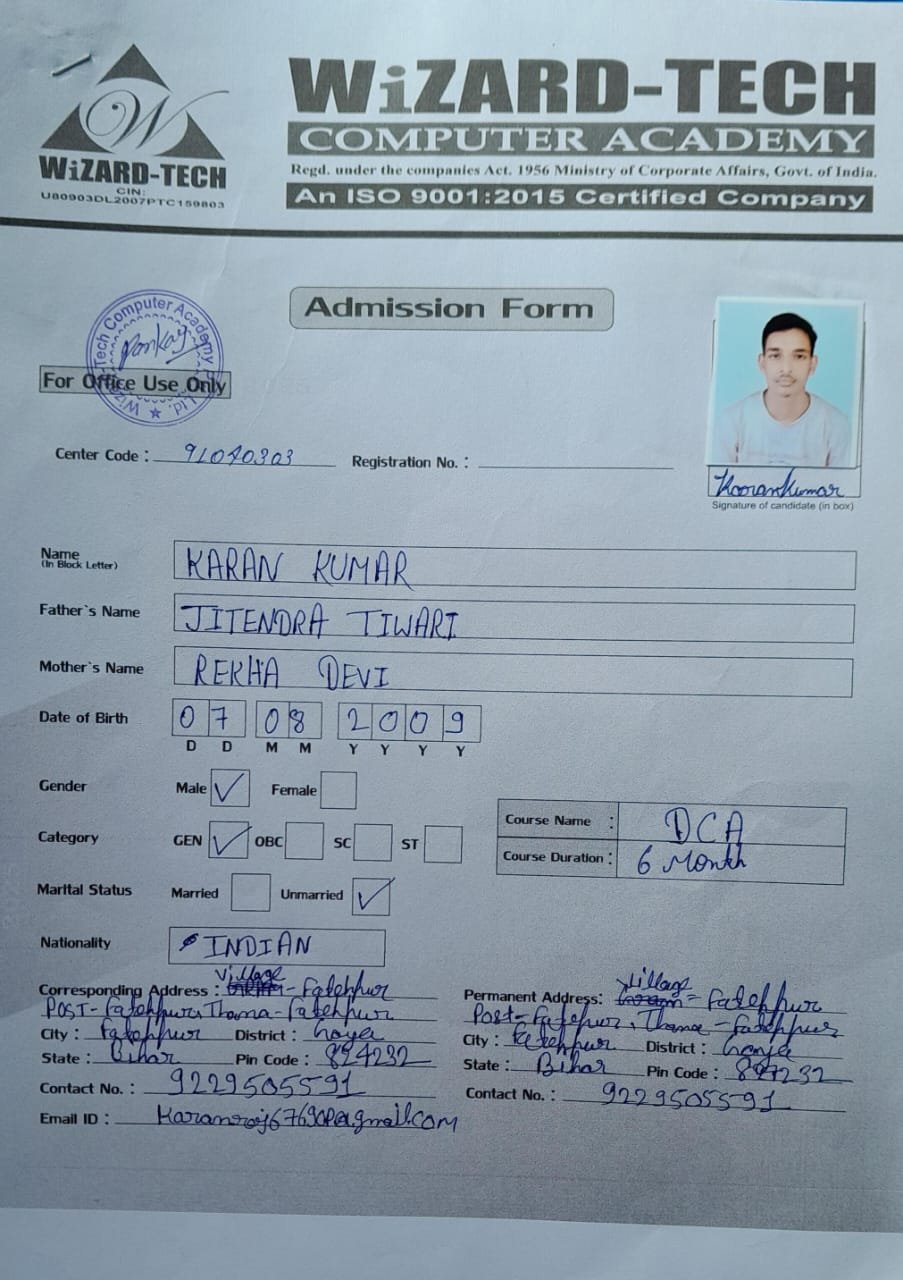 W
WiZARD-TECH
CIN:
U80903DL2007PTC159803
WiZARD-TECH
COMPUTER ACADEMY
Regd. under the companies Act. 1956 Ministry of Corporate Affairs, Govt. of India.
An ISO 9001:2015 Certified Company
Admission Form
Tech Computer Academy Ltd.
Pankaj
For Office Use Only
Center Code : 91070303 Registration No. :
Signature of candidate (in box)
Name KARAN KUMAR
(In Block Letter)
Father`s Name JITENDRA TIWARI
Mother`s Name REKHA DEVI
Date of Birth 07 08 2009
D D M M Y Y Y Y
Gender Male ✓ Female
Course Name : DCA
Category GEN ✓ OBC SC ST
Course Duration : 6 Month
Marital Status Married Unmarried ✓
Nationality INDIAN
Corresponding Address : Village - Fatehpur
Post- Fatehpur, Thana - Fatehpur
City : Fatehpur District : Gaya
State : Bihar Pin Code : 824232
Contact No. : 9229505591
Email ID :
Permanent Address: Village = Fatehpur
Post- Fatepur, Thana - Fatehpur
City : Fatehpur District : Gaya
State : Bihar Pin Code : 824232
Contact No. : 9229505591